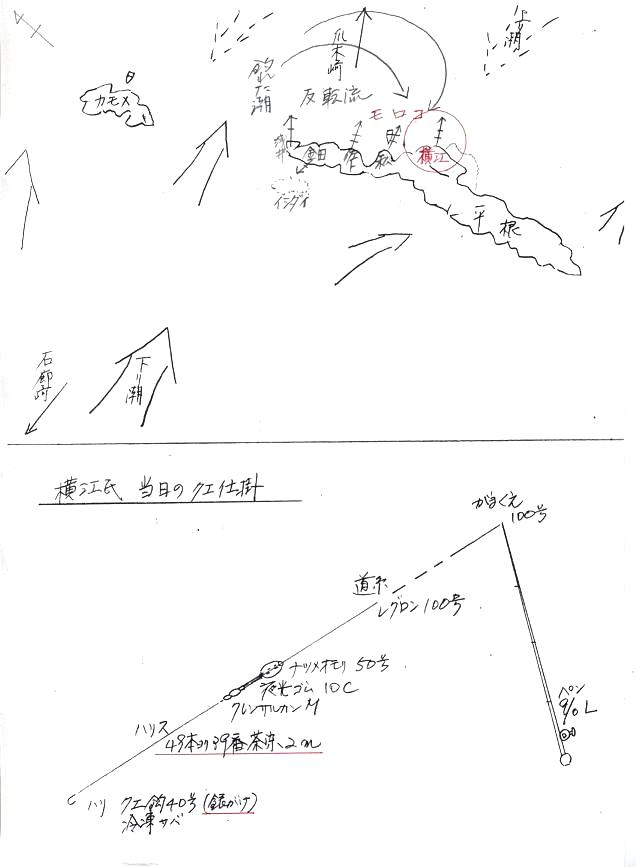 上り潮
爪木崎
潮
反転流
カモメ
モロコ
鈿田
横江
イシダイ
平根
石廊崎
下り潮
横江氏 当日のクエ仕掛
がまくえ
100号
道糸
レグロン100号
ナツメオモリ 50号
夜光ゴム 10C
クレンサルカン M
ペン
9/0 L
ハリス
49本ヨリ39番茶凍、2m
ハリ クエ鈎40号(銀がけ)
冷凍サバ